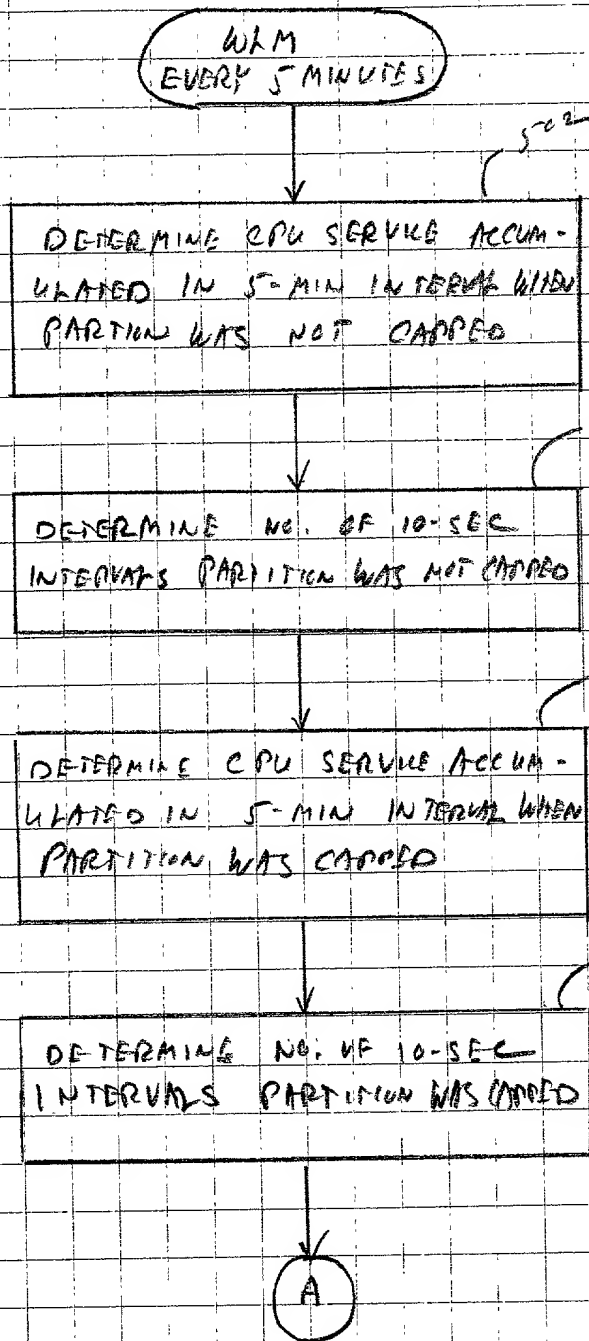 WLM
EVERY 5 MINUTES
502
DETERMINE CPU SERVICE ACCUM-
ULATED IN 5-MIN INTERVAL WHEN
PARTION WAS NOT CAPPED
DETERMINE NO. OF 10-SEC
INTERVALS PARTITION WAS NOT CAPPED
DETERMINE CPU SERVICE ACCUM-
ULATED IN 5-MIN INTERVAL WHEN
PARTITION WAS CAPPED
DETERMINE NO. OF 10-SEC
INTERVALS PARTITION WAS CAPPED
A